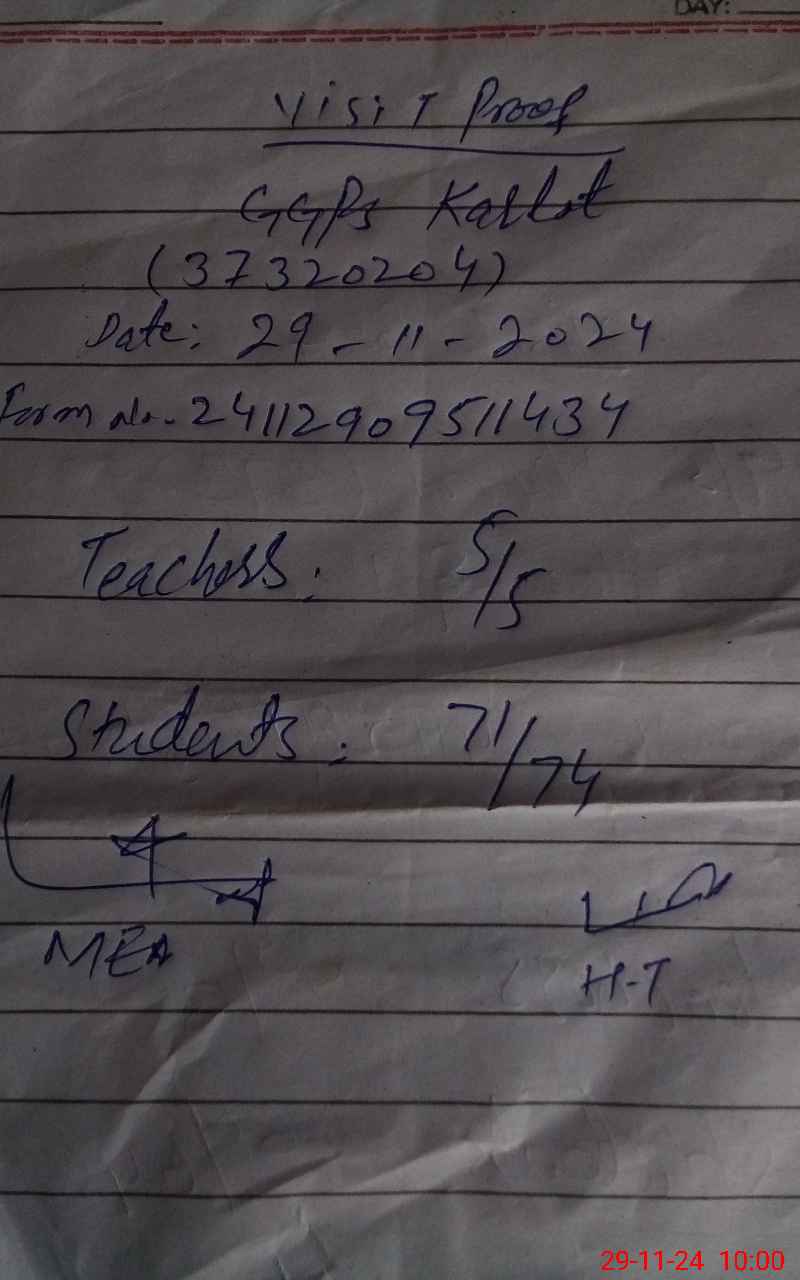 DAY:
Visit Proof
GGPS
(37320204)
Date: 29-11-2024
Form No. 24112909511434
Teachers: 5/5
Students: 71/74
MEA
H-T
29-11-24 10:00